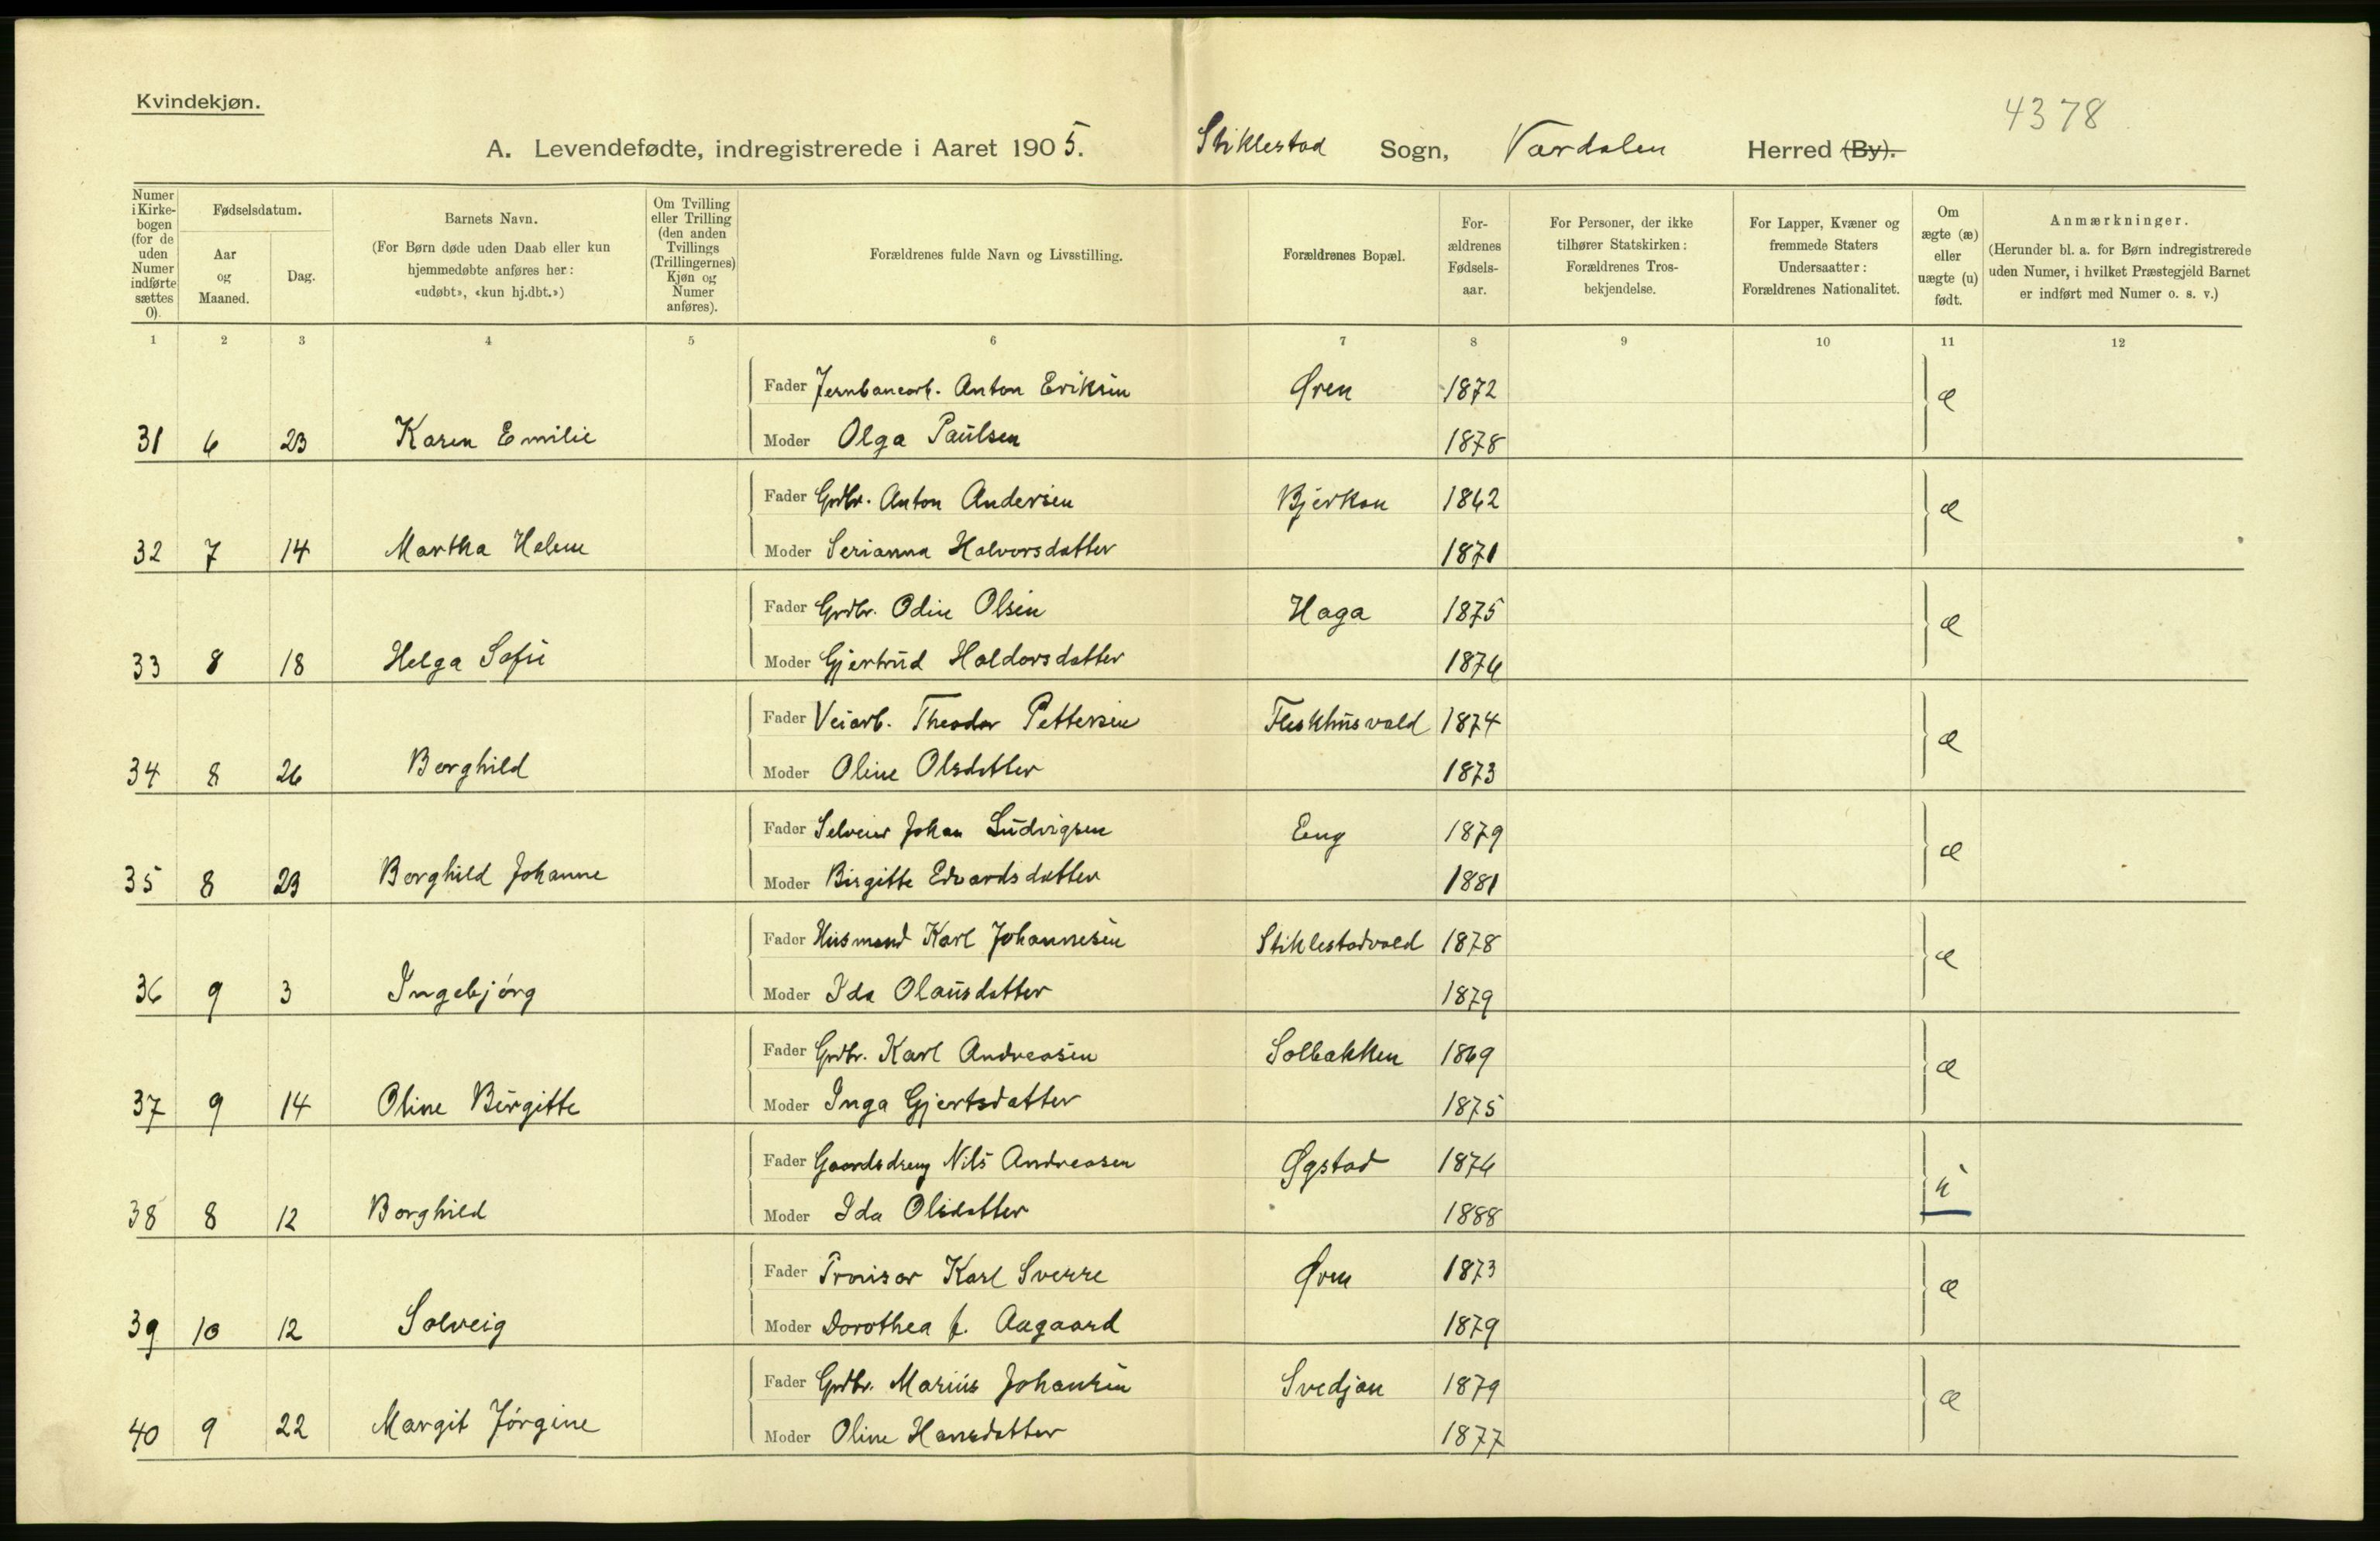 Kvindekjøn.
4378
A. Levendefødte, indregistrerede i Aaret 1905. Stiklestad Sogn, Værdalen Herred (By).
Numer i Kirkebogen (for de uden Numer indførte sættes 0).
Fødselsdatum.
Aar og Maaned.
Dag.
Barnets Navn.
(For Børn døde uden Daab eller kun hjemmedøbte anføres her: «udøbt», «kun hj.dbt.»)
Om Tvilling eller Trilling (den anden Tvillings (Trillingernes) Kjøn og Numer anføres).
Forældrenes fulde Navn og Livsstilling.
Forældrenes Bopæl.
For-ældrenes Fødsels-aar.
For Personer, der ikke tilhører Statskirken: Forældrenes Tros-bekjendelse.
For Lapper, Kvæner og fremmede Staters Undersaatter: Forældrenes Nationalitet.
Om ægte (æ) eller uægte (u) født.
Anmærkninger.
(Herunder bl. a. for Børn indregistrerede uden Numer, i hvilket Præstegjeld Barnet er indført med Numer o. s. v.)
1 2 3 4 5 6 7 8 9 10 11 12
Fader Jernbanearb. Anton Eriksen Øren 1872 æ
31 6 23 Karen Emilie Moder Olga Paulsen 1878
Fader Grdbr. Anton Andersen Bjerkan 1862 æ
32 7 14 Martha Helene Moder Serianna Halvorsdatter 1871
Fader Grdbr. Odin Olsen Haga 1875 æ
33 8 18 Helga Sofie Moder Gjertrud Haldorsdatter 1876
Fader Veiarb. Theodor Pettersen Fleskhusvald 1874 æ
34 8 26 Borghild Moder Oline Olsdatter 1873
Fader Selveier Johan Ludvigsen Eng 1879 æ
35 8 23 Borghild Johanne Moder Birgitte Edvardsdatter 1881
Fader Husmand Karl Johannesen Stiklestadvald 1878 æ
36 9 3 Ingebjörg Moder Ida Olausdatter 1879
Fader Grdbr. Karl Andreasen Solbakken 1869 æ
37 9 14 Oline Birgitte Moder Inga Gjertsdatter 1875
Fader Gaardsdreng Nils Andreasen Øgstad 1876 u
38 8 12 Borghild Moder Ida Olsdatter 1888
Fader Provisor Karl Sverre Øren 1873 æ
39 10 12 Solveig Moder Dorothea f. Aagaard 1879
Fader Grdbr. Marius Johansen Svedjan 1879 æ
40 9 22 Margit Jörgine Moder Oline Hansdatter 1877